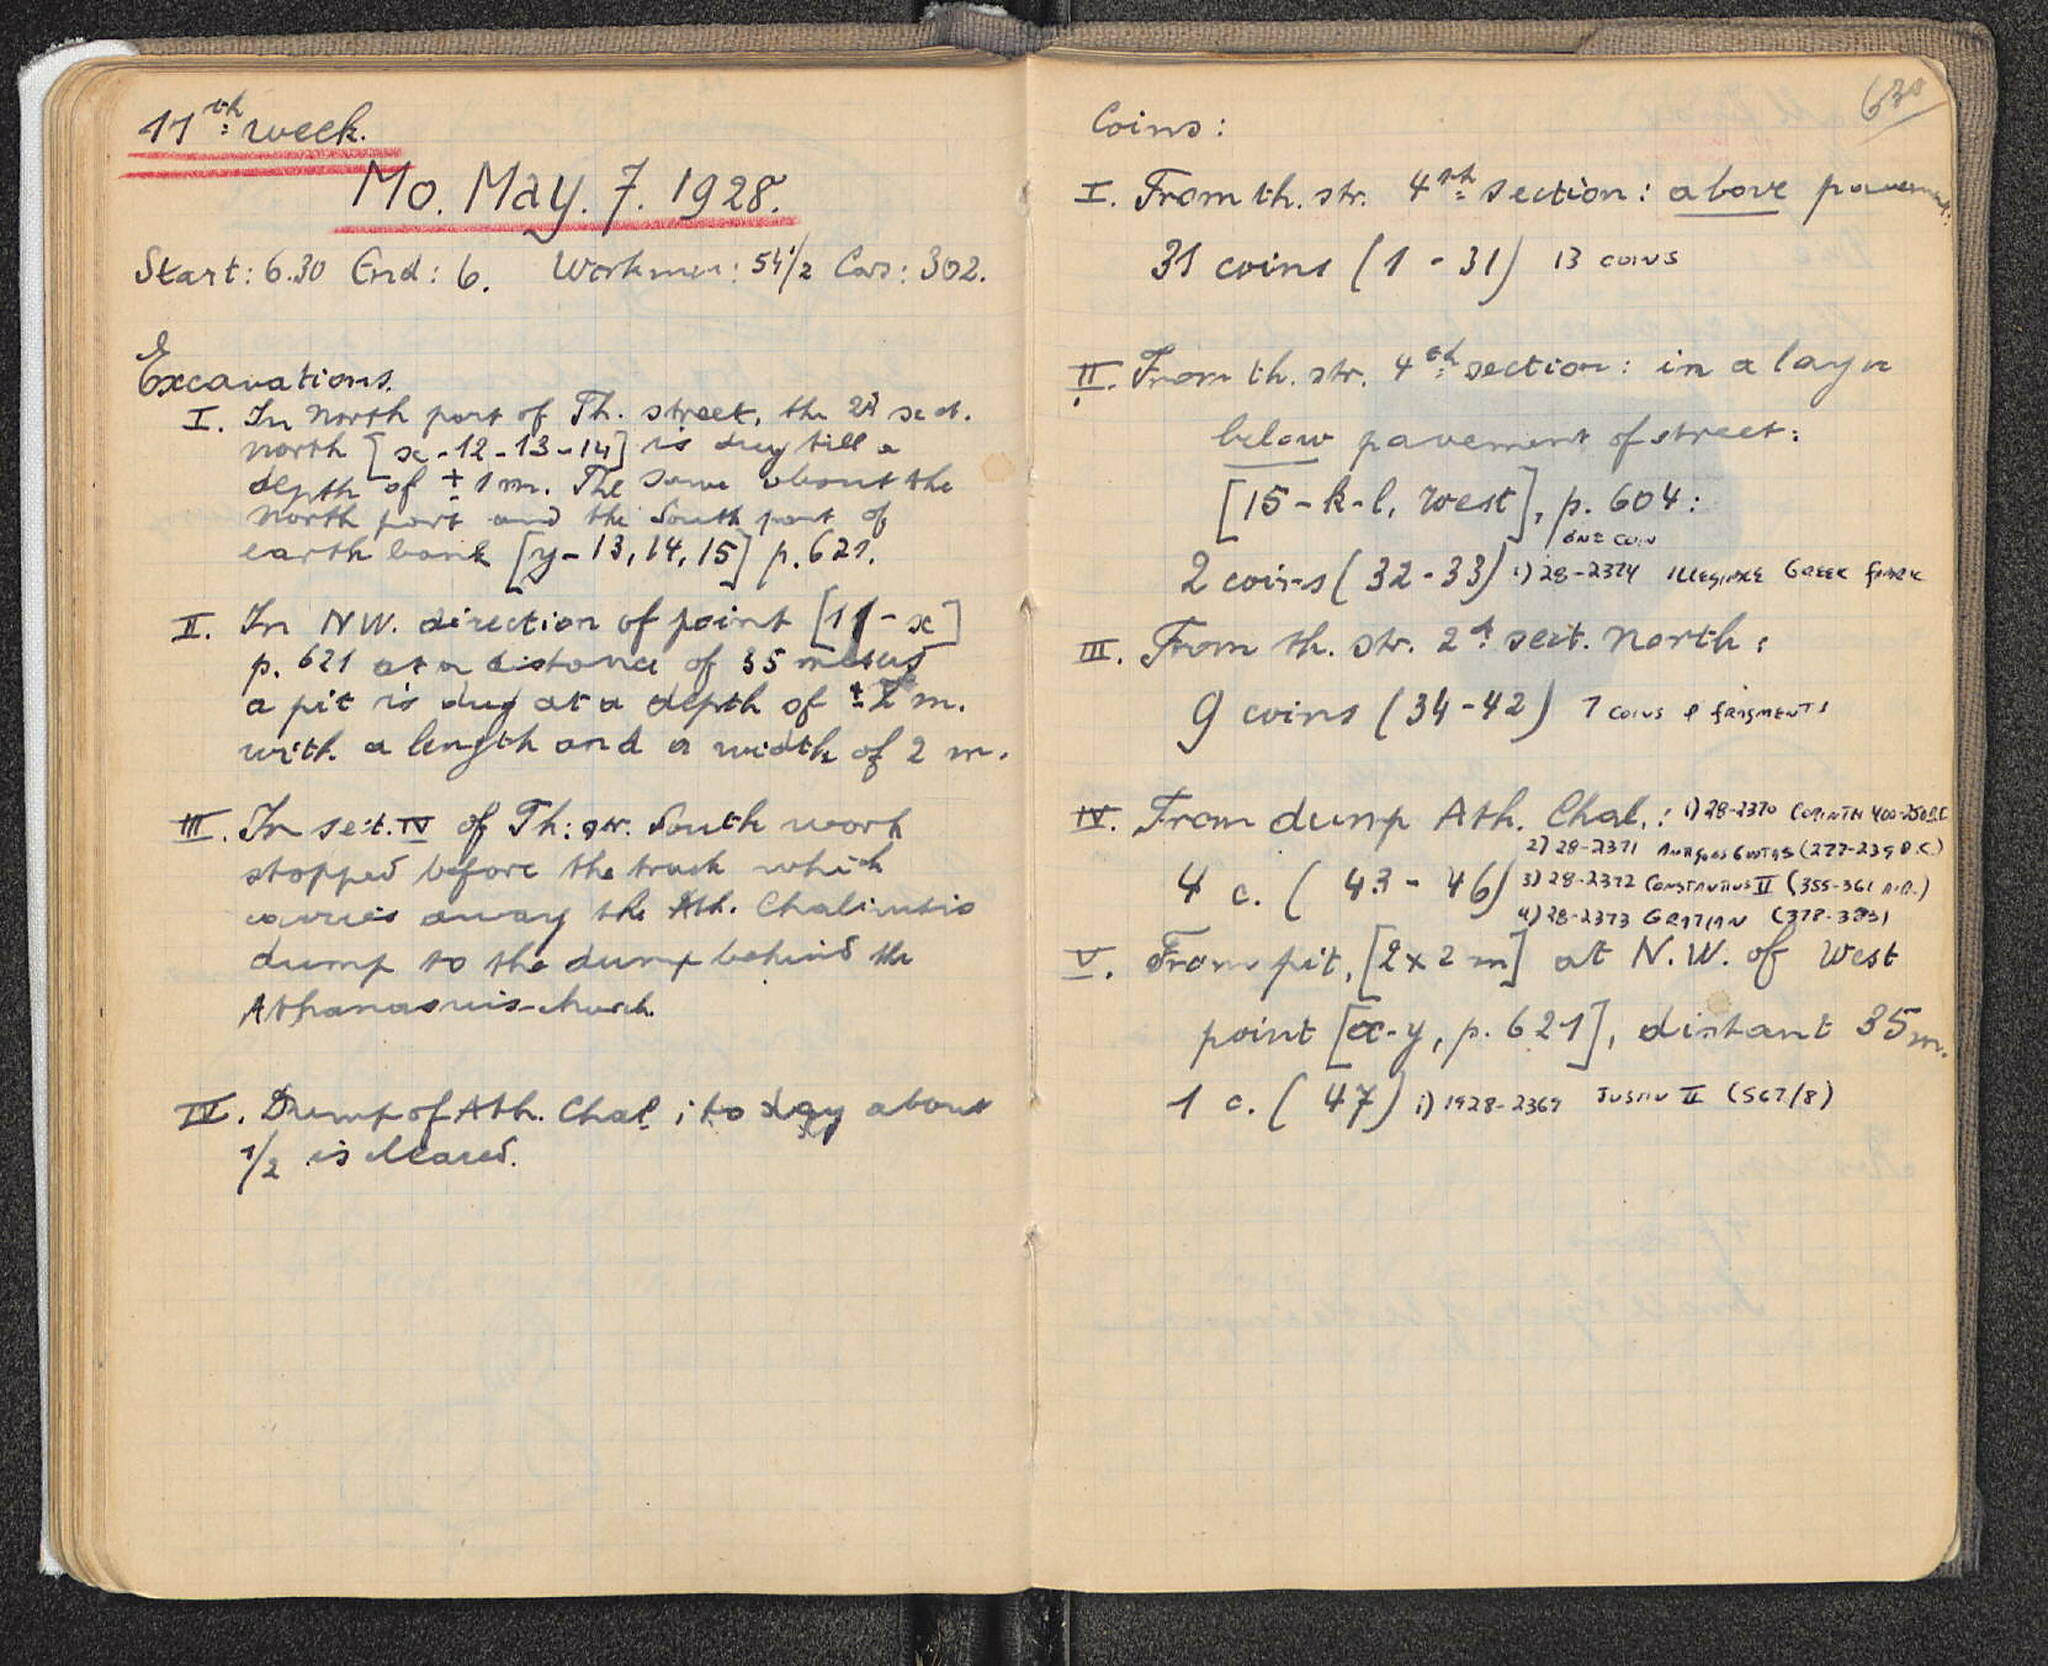 11th week.
Mo. May. 7. 1928.
Start: 6.30 End: 6. Workmen: 54 1/2 Cars: 302.
Excavations.
I. In north part of Th. street, the 2d sect.
north [x-12-13-14] is dug till a
depth of ± 1 m. The same about the
north part and the South part of
earth bank [y-13, 14, 15] p. 621.
II. In NW. direction of point [11-x]
p. 621 at a distance of 35 meters
a pit is dug at a depth of ± 2 m.
with a length and a width of 2 m.
III. In sect. IV of Th. str. South work
stopped before the track which
carries away the Ath. Chalimtis
dump to the dump behind the
Athanasuis-church.
IV. Dump of Ath. Chal ; to day about
1/2 is cleared.
630
Coins:
I. From th. str. 4th section: above pavement.
31 coins (1 - 31) 13 coins
II. From th. str. 4th section: in a layer
below pavement of street:
[15-k-l, west], p. 604:
one coin
2 coins (32-33) 1) 28-2374 Illegible Greek
III. From th. str. 2d sect. North:
9 coins (34-42) 7 coins & fragments
IV. From dump Ath. Chal.: 1) 28-2370 Corinth 400-250 B.C
2) 28-2371 Antigonos Gonatas (277-239 B.C.)
4 c. (43 - 46) 3) 28-2372 Constantius II (355-361 A.D.)
4) 28-2373 Gratian (378-383)
V. From pit, [2x2 m] at N.W. of West
point [x-y, p. 621], distant 35 m.
1 c. (47) 1) 1928-2369 Justin II (567/8)